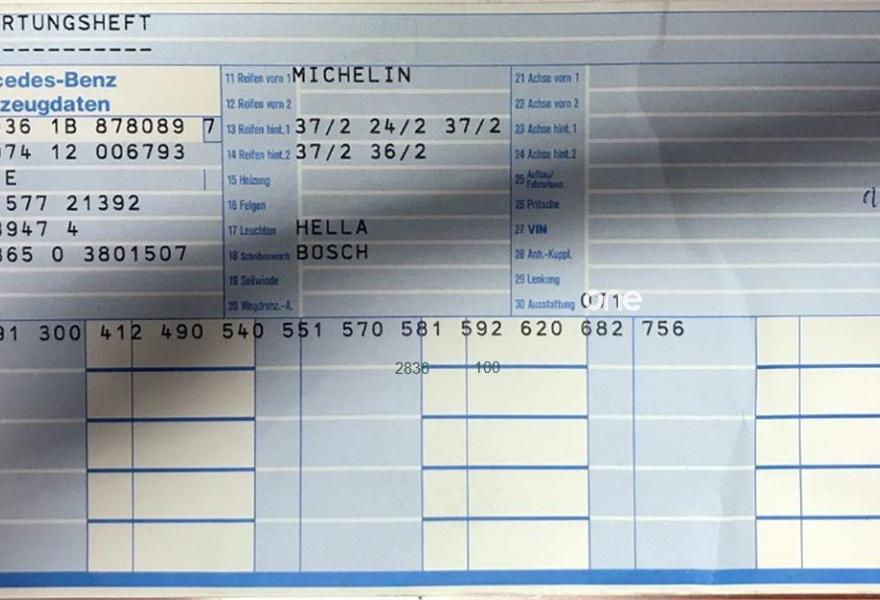 RTUNGSHEFT
-----------
cedes-Benz
zeugdaten
036 1B 878089 7
074 12 006793
E
577 21392
3947 4
365 0 3801507
11 Reifen vorn 1 MICHELIN
12 Reifen vorn 2
13 Reifen hint.1 37/2 24/2 37/2
14 Reifen hint.2 37/2 36/2
15 Heizung
16 Felgen
17 Leuchten HELLA
18 Scheibenwisch. BOSCH
19 Seilwinde
20 Wegdrehz.-A.
21 Achse vorn 1
22 Achse vorn 2
23 Achse hint.1
24 Achse hint.2
25 Aufbau/
Fahrerhaus
26 Pritsche
27 VIN
28 Anh.-Kuppl.
29 Lenkung
30 Ausstattung 071
one
91 300 412 490 540 551 570 581 592 620 682 756
2838 100